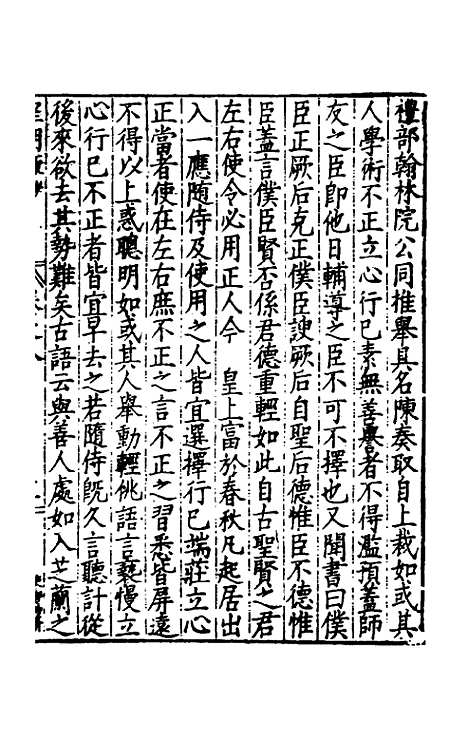 禮部翰林院公同推舉具名陳奏取自上裁如或其
人學術不正立心行已素無善譽者不得濫預蓋師
友之臣卽他日輔導之臣不可不擇也又聞書曰僕
臣正厥后克正僕臣諛厥后自聖后德惟臣不德惟
臣蓋言僕臣賢否係君德重輕如此自古聖賢之君
左右使令必用正人今 皇上富於春秋凡起居出
入一應隨侍及使用之人皆宜選擇行已端莊立心
正當者使在左右庶不正之言不正之習悉皆屏遠
不得以上惑聰明如或其人舉動輕佻語言褻慢立
心行已不正者皆宜早去之若隨侍旣久言聽計從
後來欲去其勢難矣古語云與善人處如入芝蘭之